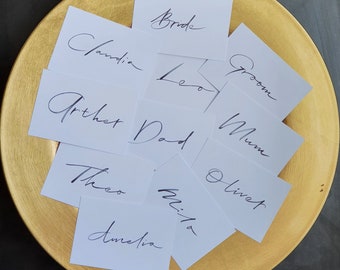 Bride
Claudia
Groom
Leo
Arthur
Dad
Mum
Theo
Mila
Oliver
Amelia